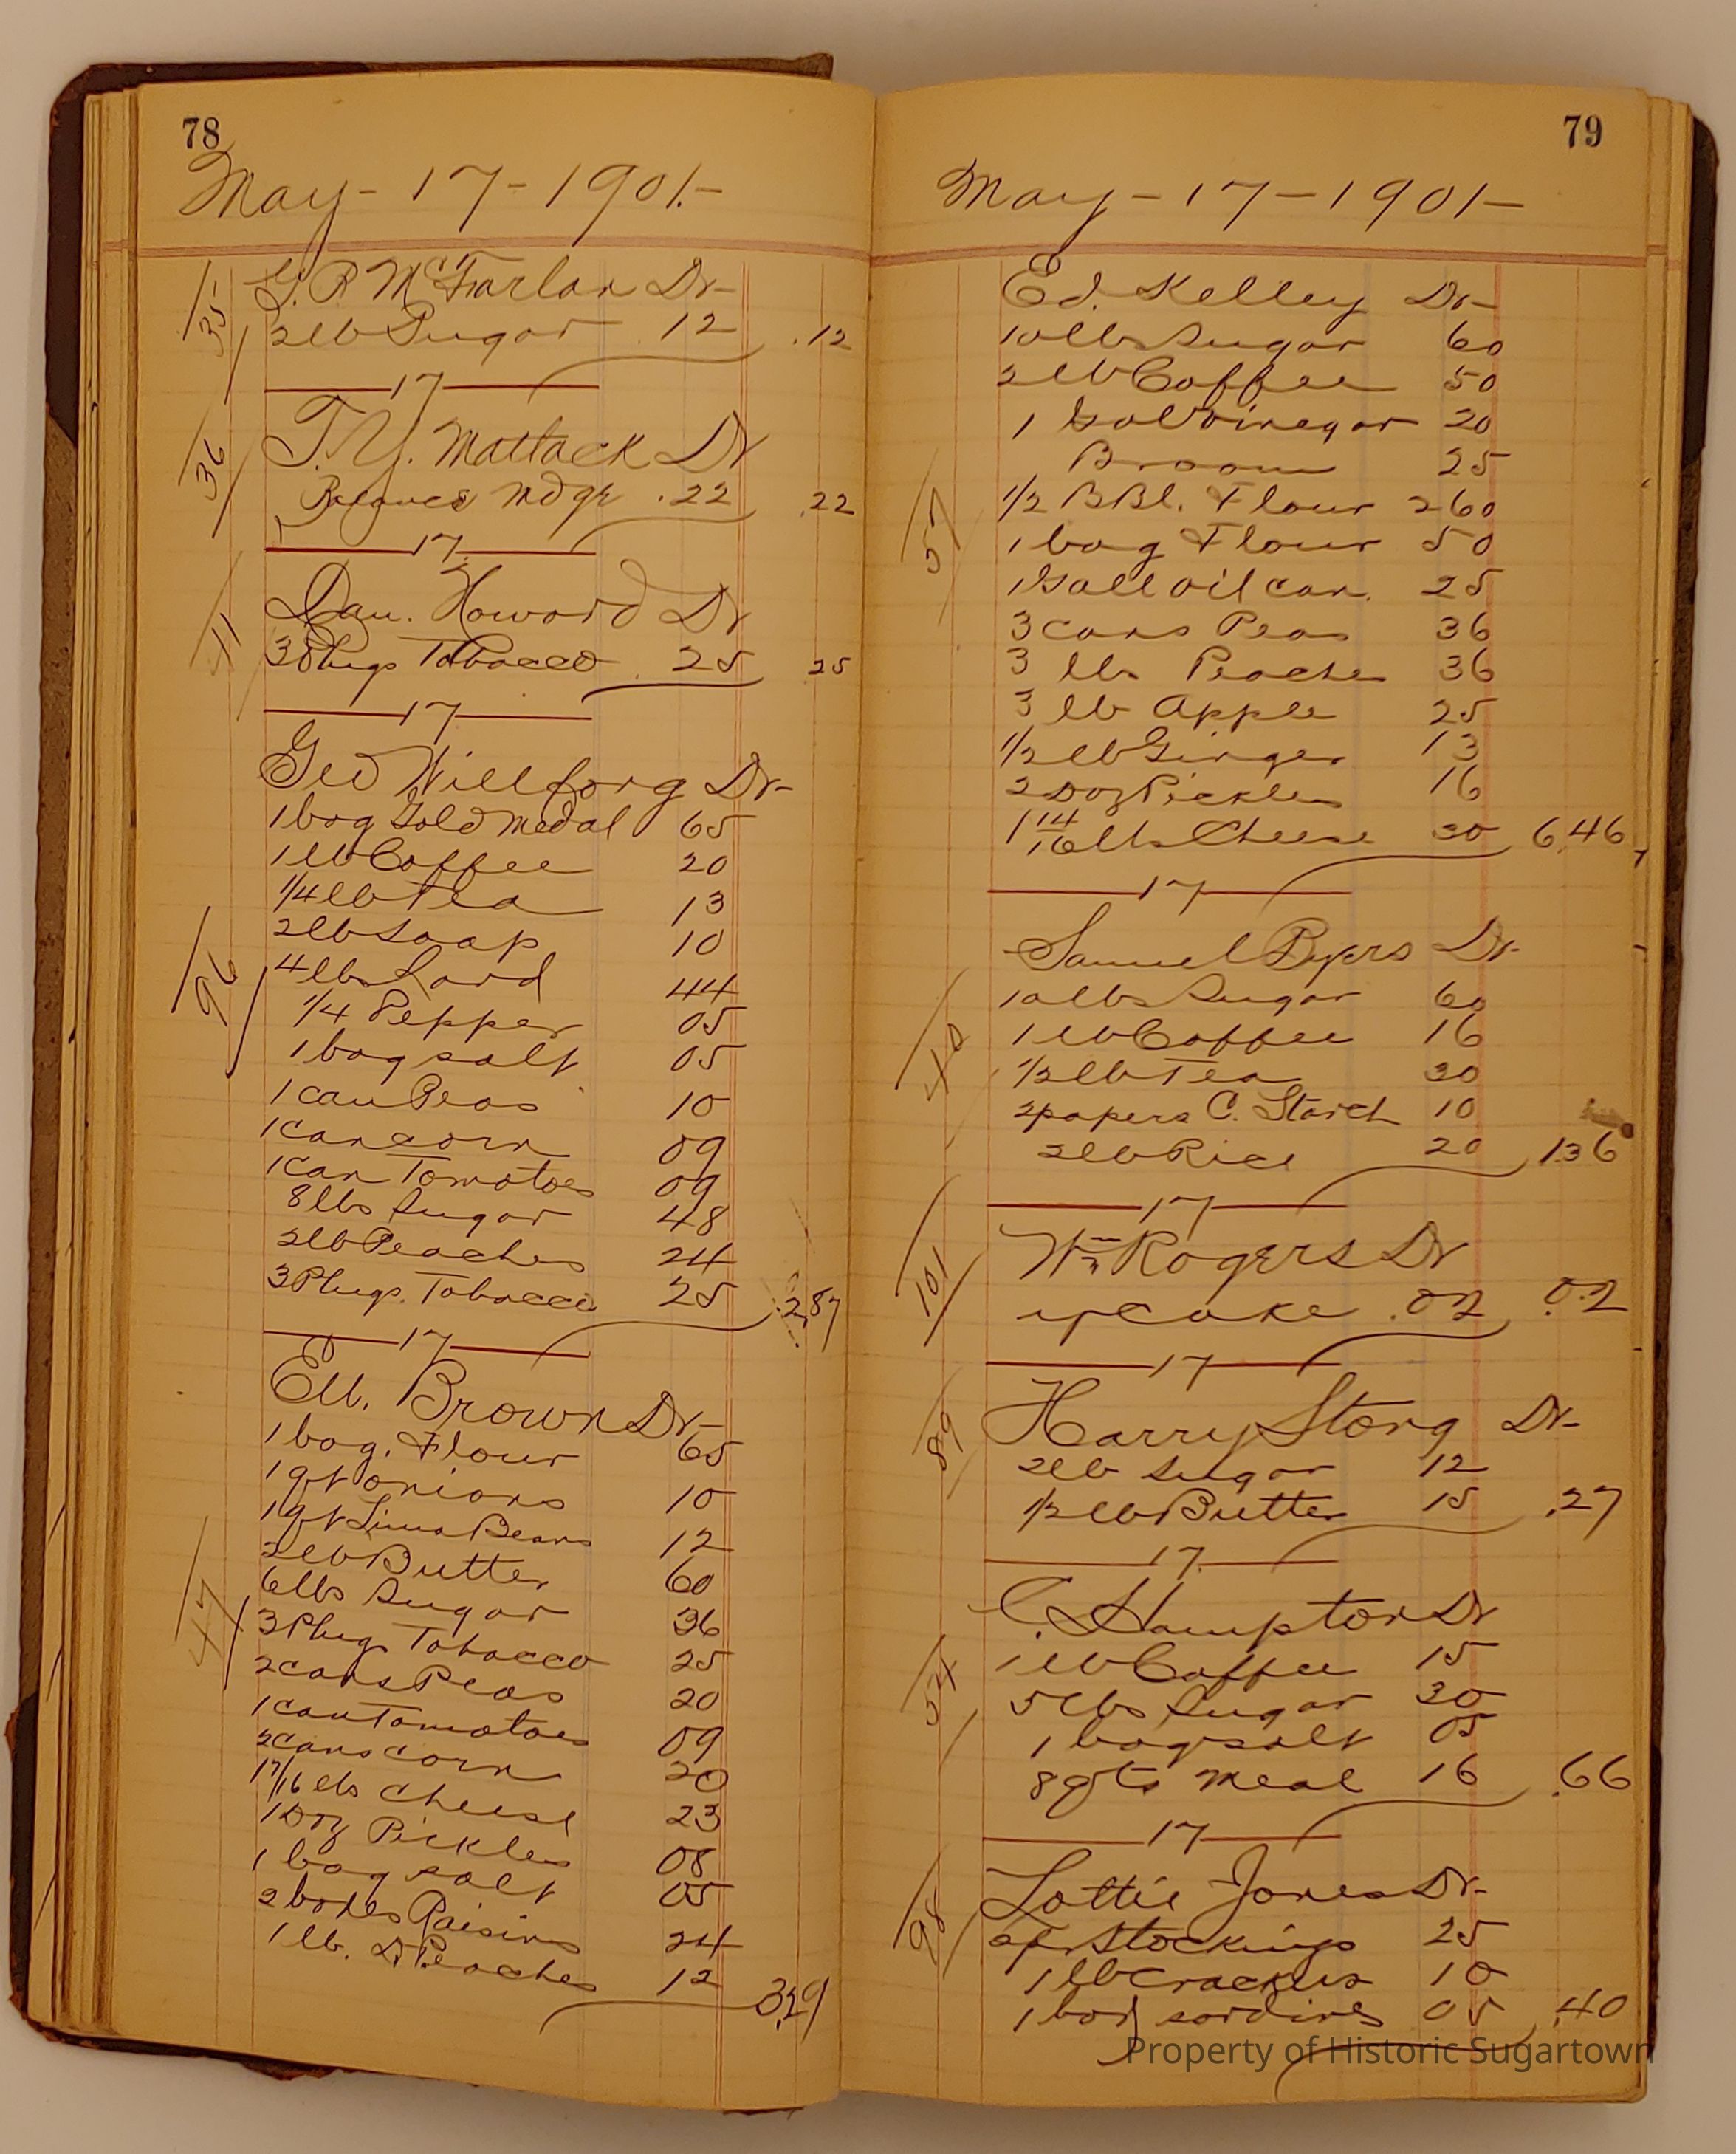 78
May - 17 - 1901.-
35
G. P. McFarlan Dr-
2 lb Sugar 12 .12
17
36
T. Y. Mattack Dr
Balance Mdqe .22 .22
17
41
Dan. Howard Dr
3 Plugs Tobacco 25 25
17
96
Geo Willforg Dr-
1 bag Gold medal 65
1 lb Coffee 20
1/4 lb Tea 13
2 lb Soap 10
4 lbs Lard 44
1/4 Pepper 05
1 bag salt 05
1 can Peas 10
1 can corn 09
1 can Tomatoes 09
8 lbs Sugar 48
2 lb Peaches 24
3 Plugs. Tobacco 25 2.87
17
47
Ell. Brown Dr-
1 bag. Flour 65
1 qt onions 10
1 qt Lima Beans 12
2 lb Butter 60
6 lbs Sugar 36
3 Plugs Tobacco 25
2 cans Peas 20
1 can Tomatoes 09
2 cans corn 20
17/16 lbs cheese 23
1 Doz Pickles 08
1 bag salt 05
2 boxes Raisins 24
1 lb. D. Peaches 12 3.29
79
May - 17 - 1901 -
57
Ed. Kelley Dr-
10 lbs Sugar 60
2 lb Coffee 50
1 Gal Vinegar 20
Broom 25
1/2 BBl. Flour 260
1 bag Flour 50
1 Gall oil can. 25
3 cans Peas 36
3 lbs Peaches 36
3 lb Apple 25
1/2 lb Ginger 13
2 Doz Pickles 16
1 14/16 lbs Cheese 30 6.46
17
40
Samuel Byers Dr-
10 lbs Sugar 60
1 lb Coffee 16
1/2 lb Tea 30
2 papers C. Starch 10
2 lb Rice 20 1.36
17
101
Wm Rogers Dr
cake .02 .02
17
89
Harry Storg Dr-
2 lb Sugar 12
1/2 lb Butter 15 .27
17
54
C. Hampton Dr
1 lb Coffee 15
5 lbs Sugar 30
1 bag salt 05
8 qts meal 16 .66
17
98
Lottie Jones Dr-
2 pr Stockings 25
1 lb Crackers 10
1 box sardines 05 .40
Property of Historic Sugartown